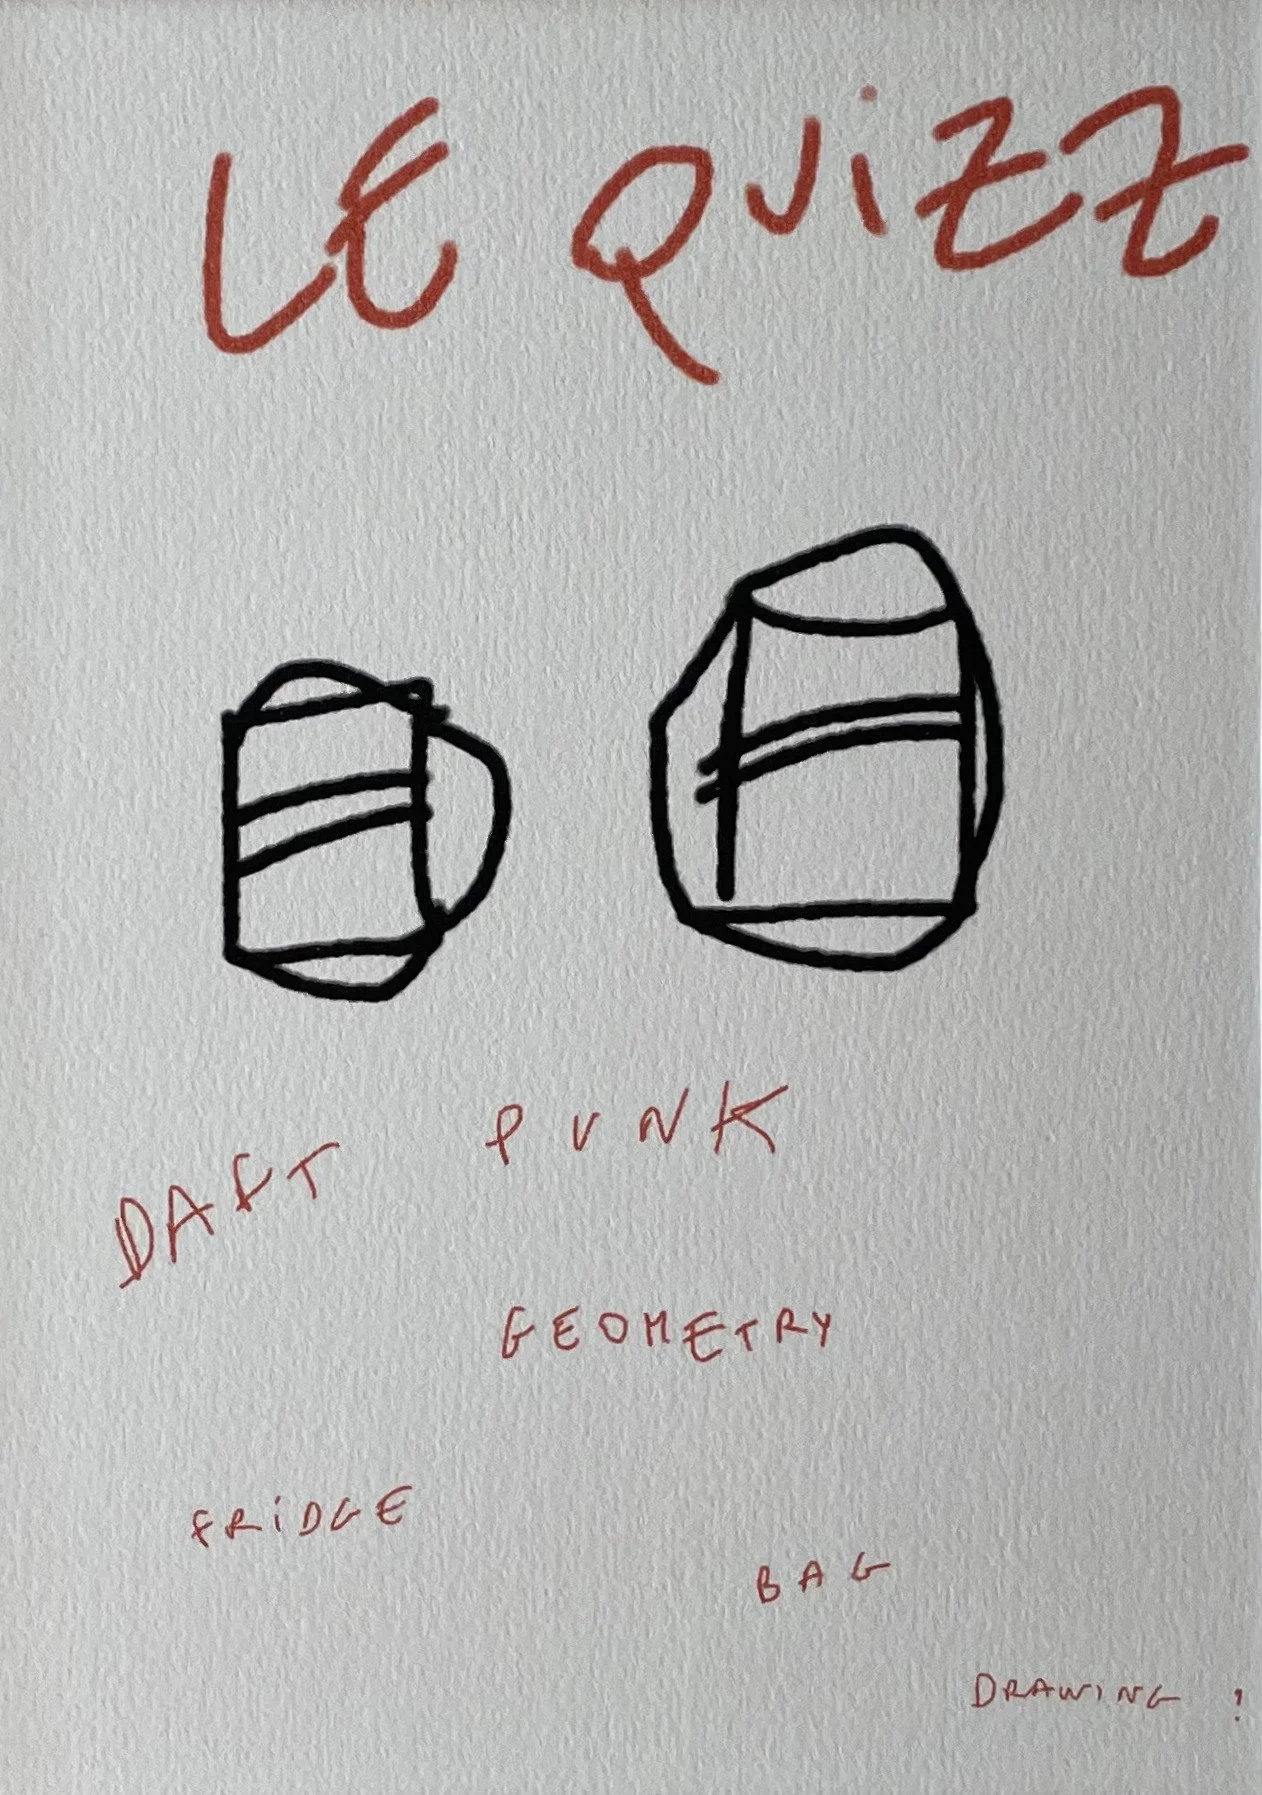 LE QUiZZ
DAFT PUNK
GEOMETRY
FRiDGE
BAG
DRAWING !